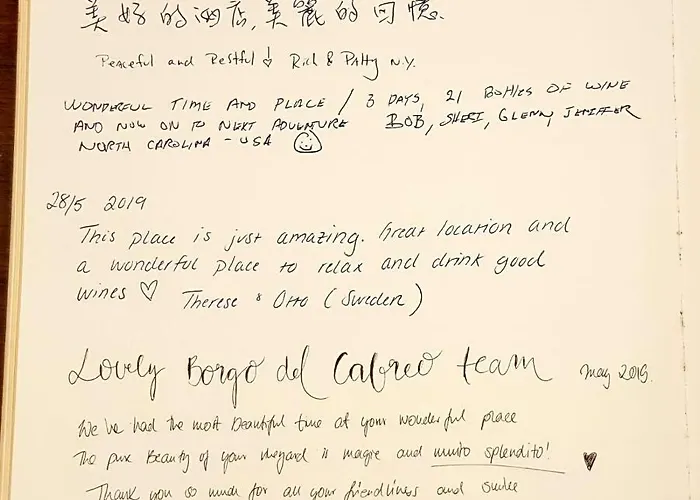 美好的酒店,美麗的回憶.
Peaceful and Restful! Rich & Patty N.Y.
WONDERFUL TIME AND PLACE / 3 DAYS, 21 BOTTLES OF WINE
AND NOW ON TO NEXT ADVENTURE BOB, SHERI, GLENN, JENIFFER
NORTH CAROLINA - USA
28/5 2019
This place is just amazing. Great location and
a wonderful place to relax and drink good
wines ♡ Therese & Otto (Sweden)
Lovely Borgo del Cabreo team May 2019.
We've had the most beautiful time at your wonderful place
The pure Beauty of your vinyard is magic and muito splendito! ♥
Thank you so much for all your friendliness and